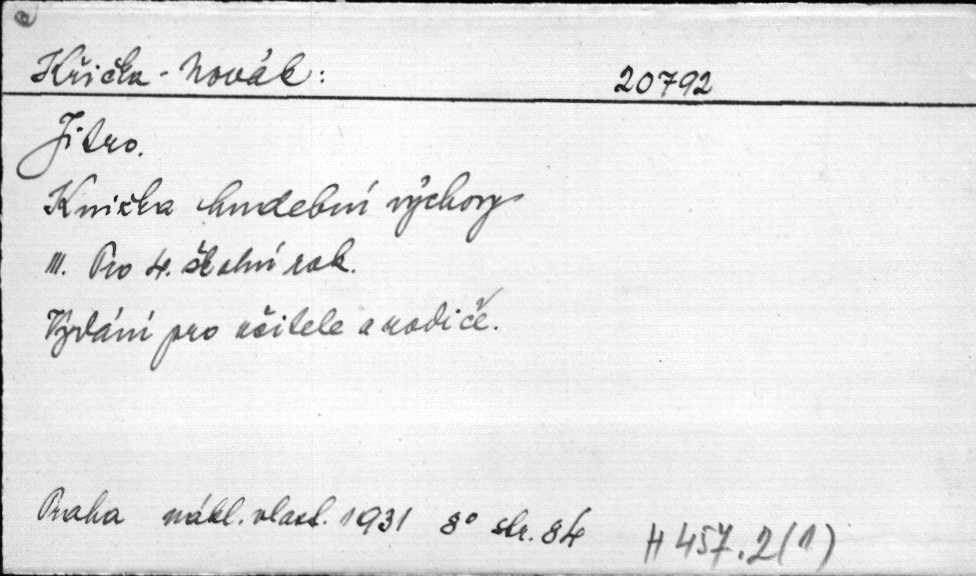 Křička - Novák: 20792
Jitro.
Knička hudební výchovy
III. Pro 4. školní rok.
Vydání pro učitele a rodiče.
Praha nákl. vlast. 1931 8° str. 84
H 457.2(1)